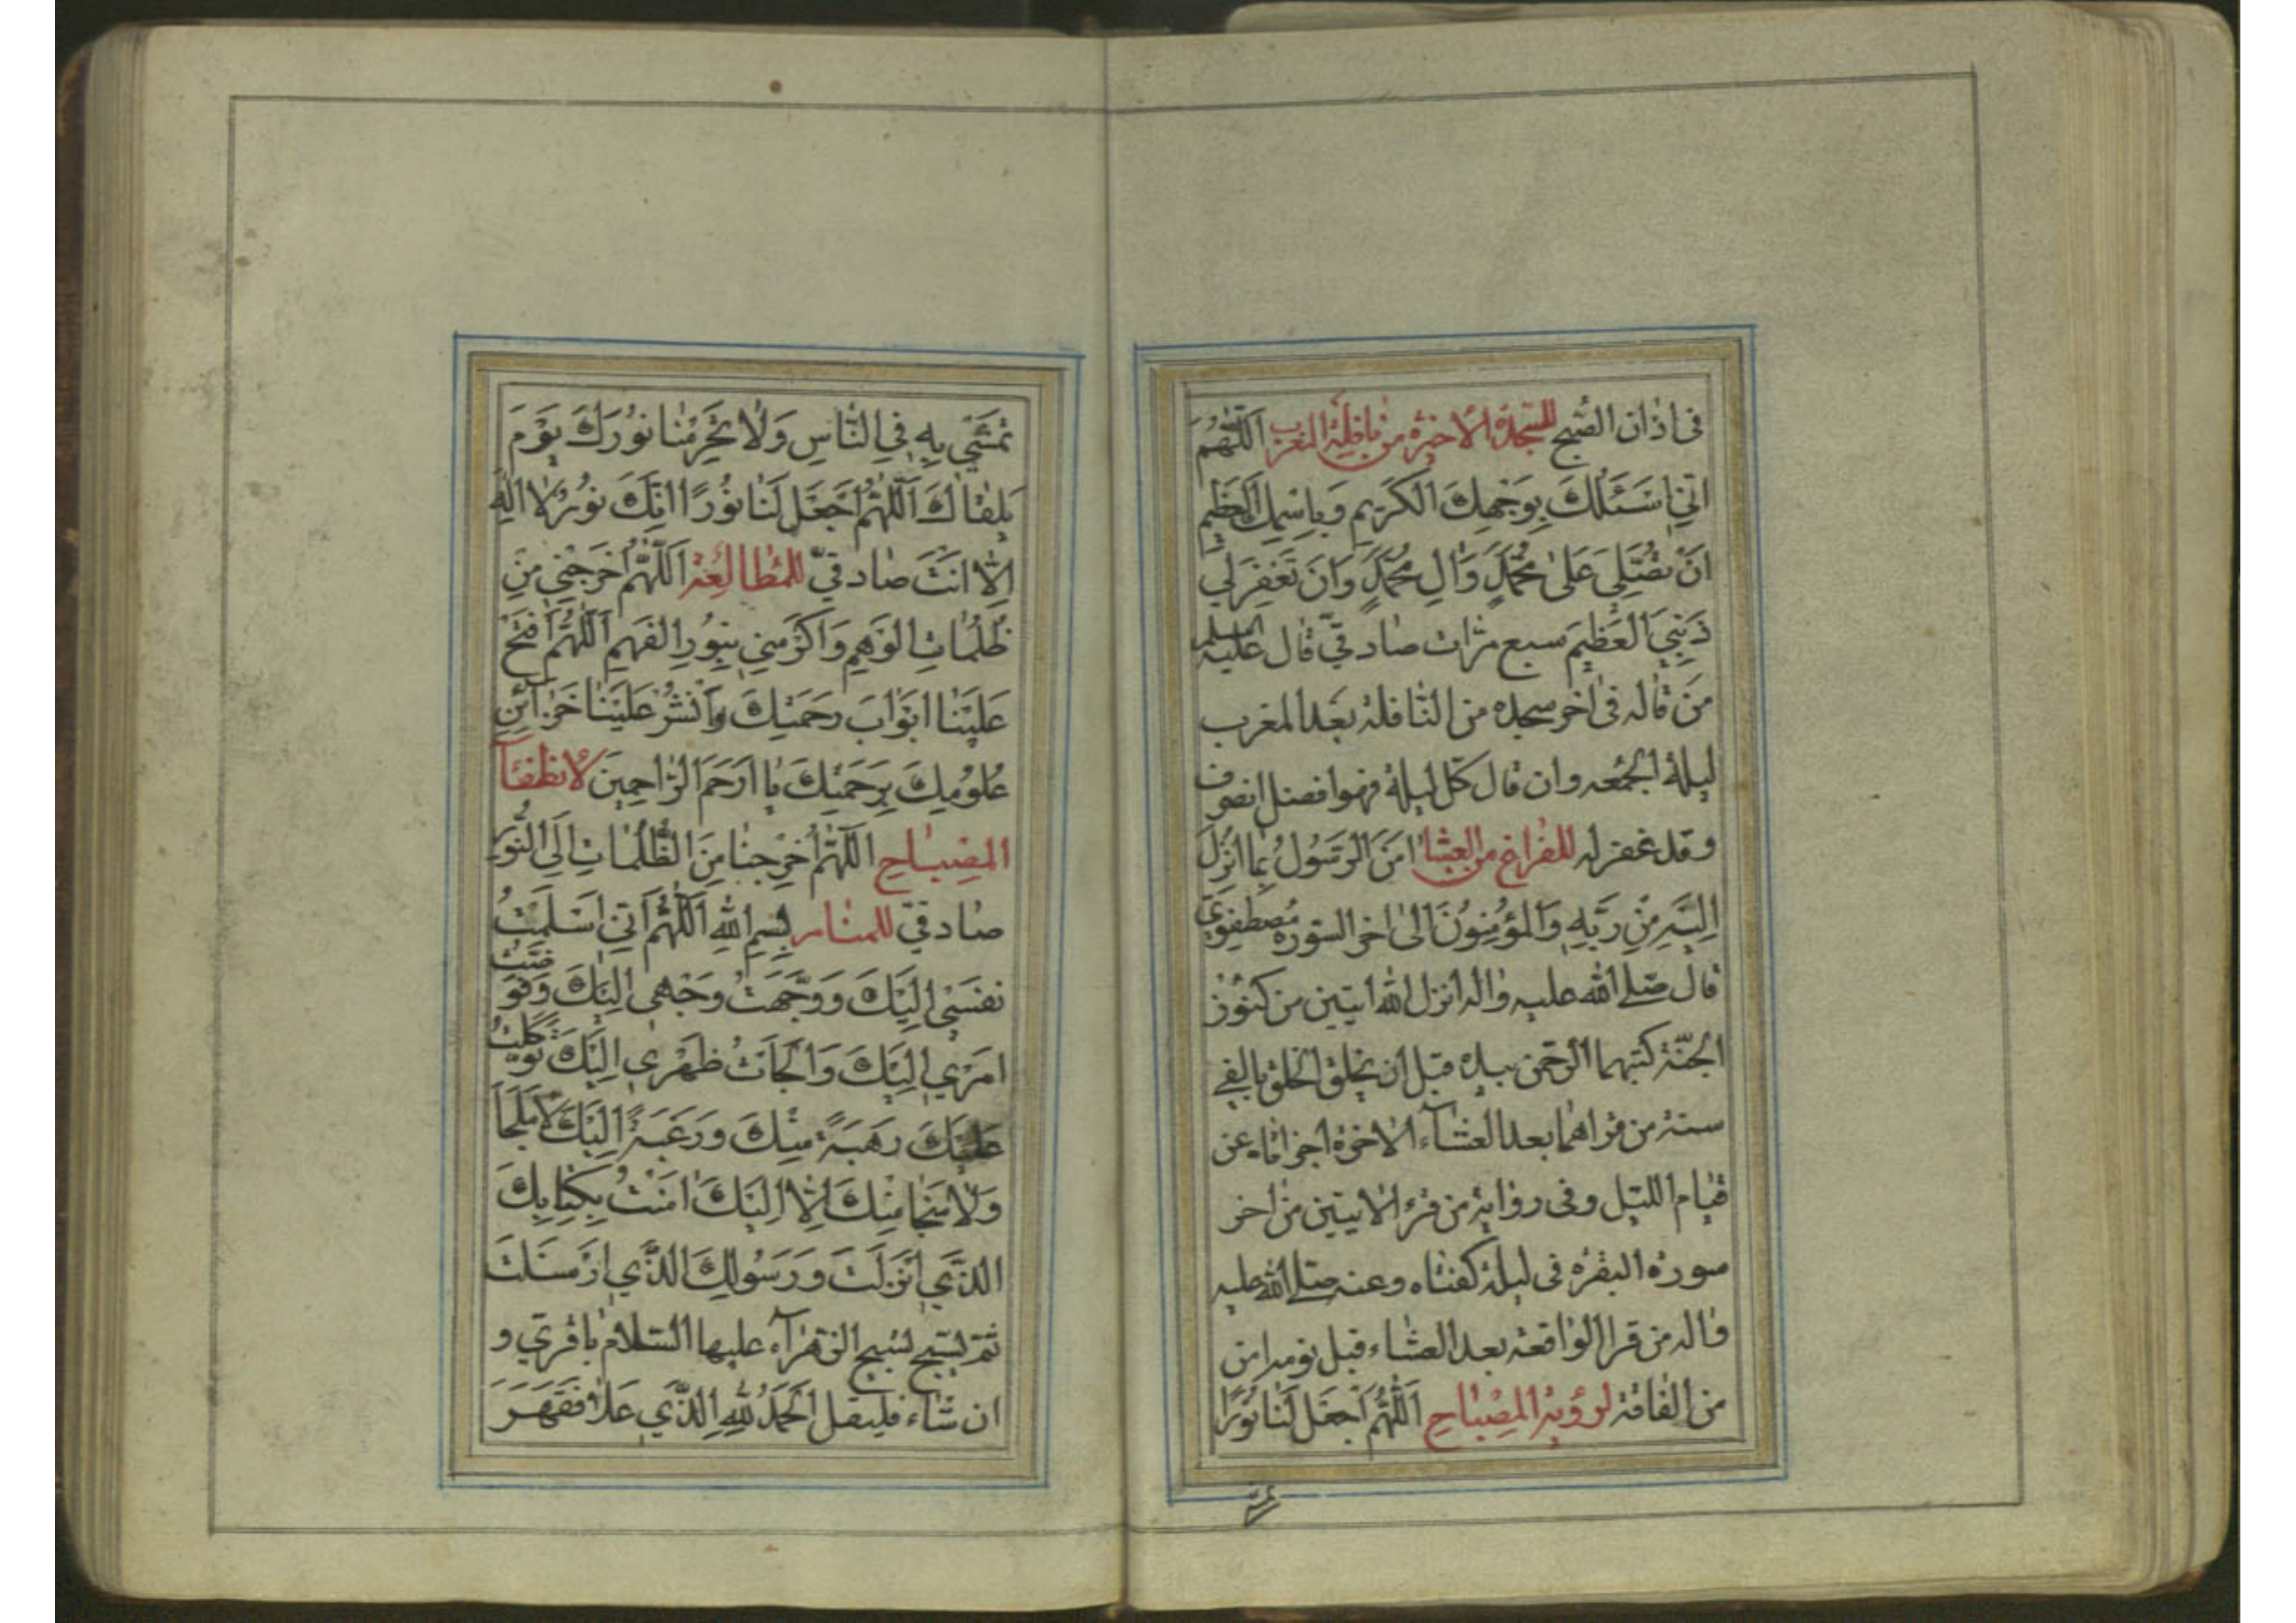 فى اذان الصّبح للسّجدة الاخيرة من نافلة المغرب اَللّٰهُمَّ
اِنّي اَسْئَلُكَ بِوَجْهِكَ الْكَرِيمِ وَبِاسْمِكَ الْعَظِيمِ
اَنْ تُصَلِّيَ عَلىٰ مُحَمَّدٍ وَاٰلِ مُحَمَّدٍ وَاَنْ تَغْفِرَ لِي
ذَنْبِيَ الْعَظِيمَ سبع مرّات صادقيّ قال عليه السلم
مَن قاله فى اخر سجده من النّافلة بعد المغرب
ليلة الجمعه وان قال كلّ ليلة فهو افضل انصرف
وقد غفر له للفراغ من العشا اٰمَنَ الرَّسُولُ بِمٰا اُنْزِلَ
اِلَيْهِ مِنْ رَبِّهِ وَالْمُؤْمِنُونَ الى اخر السّورة مصطفويّ
قال صلّى الله عليه واله انزل الله ايتين من كنوز
الجنّة كتبهما الرّحمن بيده قبل ان يخلق الخلق بالفى
سنة من قراهما بعد العشآء الاخرة اجزاتاه عن
قيام الليل وفى رواية من قرء الايتين من اخر
سورة البقرة فى ليلة كفتاه وعنه صلّى الله عليه
واله من قرا الواقعة بعد العشاء قبل نومه امن
من الفاقة لرؤية المصباح اَللّٰهُمَّ اجْعَلْ لَنٰا نُورًا
نَمْشِي بِهِ فِي النّٰاسِ وَلٰا تَحْرِمْنٰا نُورَكَ يَوْمَ
نَلْقٰاكَ اَللّٰهُمَّ اجْعَلْ لَنٰا نُورًا اِنَّكَ نُورٌ لٰا اِلٰهَ
اِلّٰا اَنْتَ صادقيّ للمطالعة اَللّٰهُمَّ اَخْرِجْنِي مِنْ
ظُلُمٰاتِ الْوَهْمِ وَاَكْرِمْنِي بِنُورِ الْفَهْمِ اَللّٰهُمَّ افْتَحْ
عَلَيْنٰا اَبْوٰابَ رَحْمَتِكَ وَانْشُرْ عَلَيْنٰا خَزٰائِنَ
عُلُومِكَ بِرَحْمَتِكَ يٰا اَرْحَمَ الرّٰاحِمِينَ لانطفآ
المصباح اَللّٰهُمَّ اَخْرِجْنٰا مِنَ الظُّلُمٰاتِ اِلَى النُّورِ
صادقيّ للمنام بِسْمِ اللهِ اَللّٰهُمَّ اِنّي اَسْلَمْتُ
نَفْسِي اِلَيْكَ وَوَجَّهْتُ وَجْهِي اِلَيْكَ وَفَوَّضْتُ
اَمْرِي اِلَيْكَ وَاَلْجَأْتُ ظَهْرِي اِلَيْكَ تَوَكَّلْتُ
عَلَيْكَ رَهْبَةً مِنْكَ وَرَغْبَةً اِلَيْكَ لٰا مَلْجَأَ
وَلٰا مَنْجٰا مِنْكَ اِلّٰا اِلَيْكَ اٰمَنْتُ بِكِتٰابِكَ
الَّذِي اَنْزَلْتَ وَرَسُولِكَ الَّذِي اَرْسَلْتَ
ثمّ يسبّح تسبيح الزهرآء عليها السّلام باقريّ و
ان شاء فليقل اَلْحَمْدُ لِلّٰهِ الَّذِي عَلٰا فَقَهَرَ